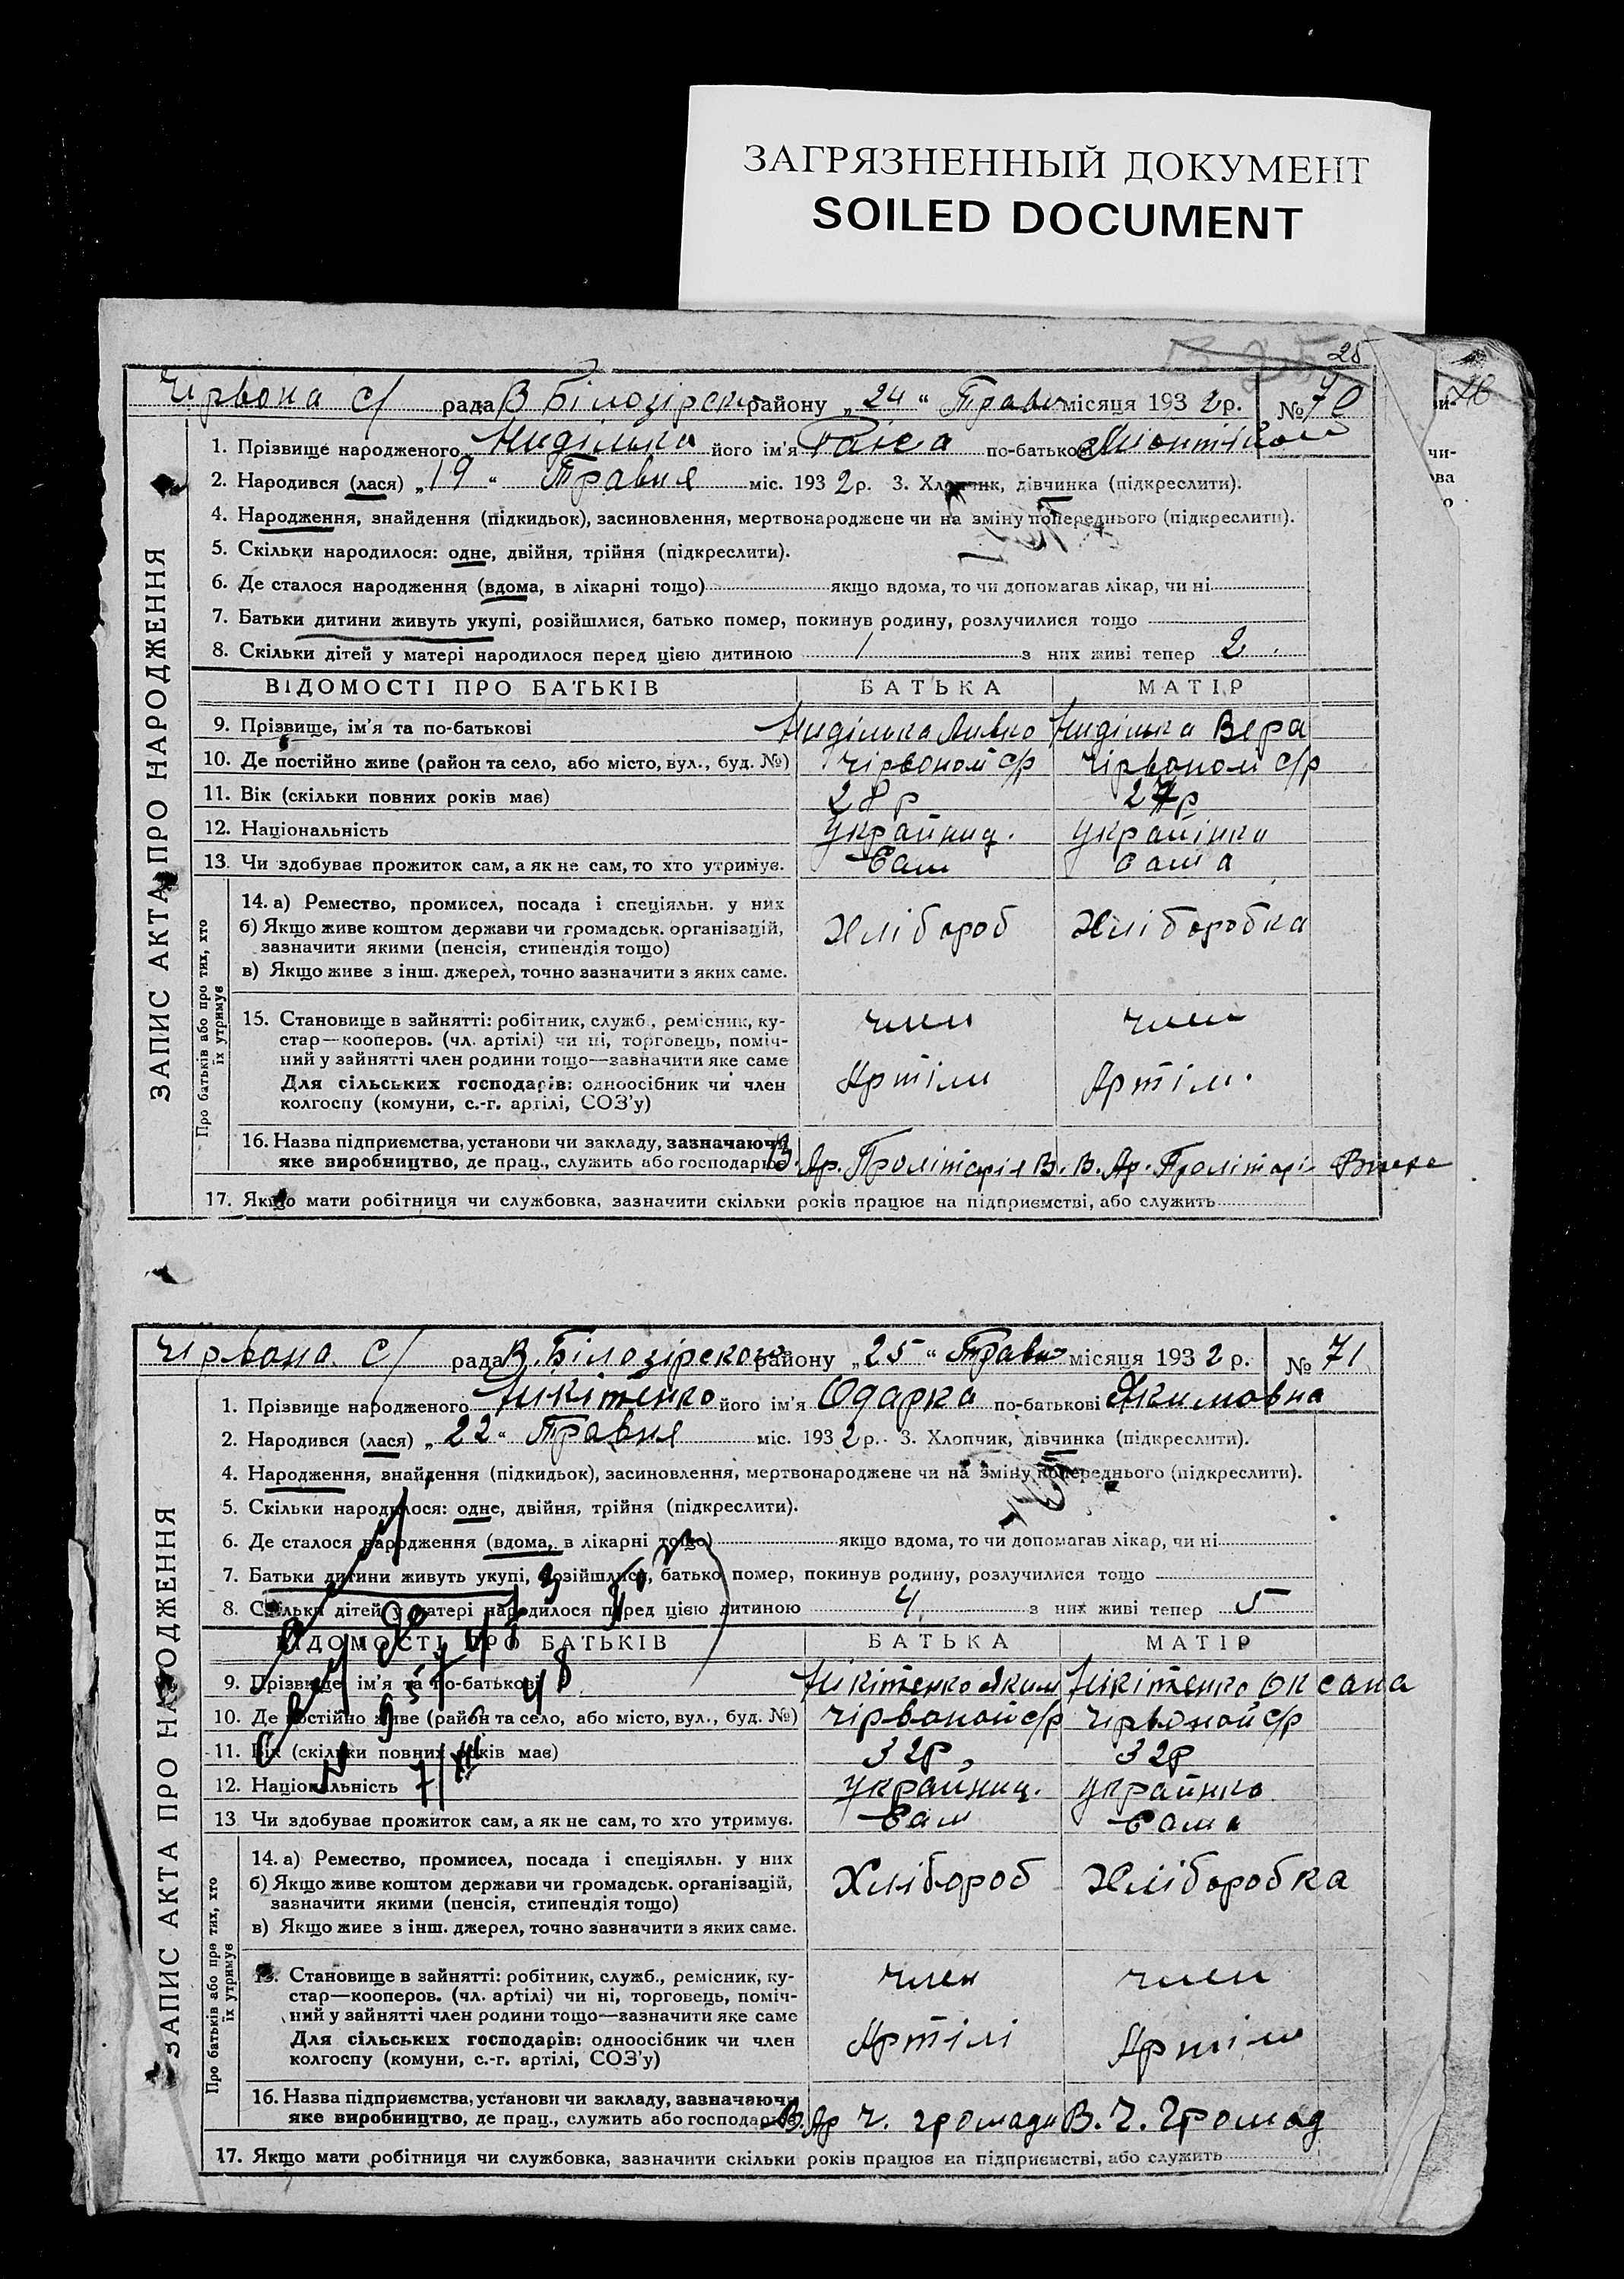 ЗАГРЯЗНЕННЫЙ ДОКУМЕНТ
SOILED DOCUMENT
25
Чірвона с/ рада В Білозірськ району „24“ Трав місяця 1932 р. № 70
1. Прізвище народженого Ниділька його ім'я Раіса по-батькові
2. Народився (лася) „19“ Травня міс. 1932 р. 3. Хлопчик, дівчинка (підкреслити).
4. Народження, знайдення (підкидьок), засиновлення, мертвонароджене чи на зміну попереднього (підкреслити).
5. Скільки народилося: одне, двійня, трійня (підкреслити).
6. Де сталося народження (вдома, в лікарні тощо) якщо вдома, то чи допомагав лікар, чи ні
7. Батьки дитини живуть укупі, розійшлися, батько помер, покинув родину, розлучилися тощо
8. Скільки дітей у матері народилося перед цією дитиною 1 з них живі тепер 2
ВІДОМОСТІ ПРО БАТЬКІВ БАТЬКА МАТІР
9. Прізвище, ім'я та по-батькові Ниділька Ниділька Вера
10. Де постійно живе (район та село, або місто, вул., буд. №) Чірвоной с/р Чірвоной с/р
11. Вік (скільки повних років має) 28 р 27 р
12. Національність Украйниц. Украінка
13. Чи здобуває прожиток сам, а як не сам, то хто утримує. Сам сама
14. а) Ремество, промисел, посада і спеціяльн. у них
б) Якщо живе коштом держави чи громадськ. організацій,
зазначити якими (пенсія, стипендія тощо)
в) Якщо живе з інш. джерел, точно зазначити з яких саме.
Хлібороб Хліборобка
15. Становище в зайнятті: робітник, служб., ремісник, ку-
стар—кооперов. (чл. артілі) чи ні, торговець, поміч-
ний у зайнятті член родини тощо—зазначити яке саме
Для сільських господарів: одноосібник чи член
колгоспу (комуни, с.-г. артілі, СОЗ'у)
член член
Артіли Артіли.
16. Назва підприємства, установи чи закладу, зазначаючи
яке виробництво, де прац., служить або господарює В. Ар. Пролітарія В. В. Ар. Пролітарі
17. Якщо мати робітниця чи службовка, зазначити скільки років працює на підприємстві, або служить
ЗАПИС АКТА ПРО НАРОДЖЕННЯ
Про батьків або про тих, хто
їх утримує
Чірвона с/ рада В. Білозірского району „25“ Трав місяця 1932 р. № 71
1. Прізвище народженого Никітенко його ім'я Одарка по-батькові Якимовна
2. Народився (лася) „22“ Травня міс. 1932 р. 3. Хлопчик, дівчинка (підкреслити).
4. Народження, знайдення (підкидьок), засиновлення, мертвонароджене чи на зміну попереднього (підкреслити).
5. Скільки народилося: одне, двійня, трійня (підкреслити).
6. Де сталося народження (вдома, в лікарні тощо) якщо вдома, то чи допомагав лікар, чи ні
7. Батьки дитини живуть укупі, розійшлися, батько помер, покинув родину, розлучилися тощо
8. Скільки дітей у матері народилося перед цією дитиною 4 з них живі тепер 5
ВІДОМОСТІ ПРО БАТЬКІВ БАТЬКА МАТІР
9. Прізвище, ім'я та по-батькові Нікітенко Яким Нікітенко Оксана
10. Де постійно живе (район та село, або місто, вул., буд. №) Чірвоной с/р Чірвоной с/р
11. Вік (скільки повних років має) 32 р 32 р
12. Національність Украйниц. Украйнка
13 Чи здобуває прожиток сам, а як не сам, то хто утримує. Сам Сама
14. а) Ремество, промисел, посада і спеціяльн. у них
б) Якщо живе коштом держави чи громадськ. організацій,
зазначити якими (пенсія, стипендія тощо)
в) Якщо живе з інш. джерел, точно зазначити з яких саме.
Хлібороб Хліборобка
15. Становище в зайнятті: робітник, служб., ремісник, ку-
стар—кооперов. (чл. артілі) чи ні, торговець, поміч-
ний у зайнятті член родини тощо—зазначити яке саме
Для сільських господарів: одноосібник чи член
колгоспу (комуни, с.-г. артілі, СОЗ'у)
член член
Артілі Артіли
16. Назва підприємства, установи чи закладу, зазначаючи
яке виробництво, де прац., служить або господарює В. Ар Ч. громади В. Ч. Громад
17. Якщо мати робітниця чи службовка, зазначити скільки років працює на підприємстві, або служить
ЗАПИС АКТА ПРО НАРОДЖЕННЯ
Про батьків або про тих, хто
їх утримує